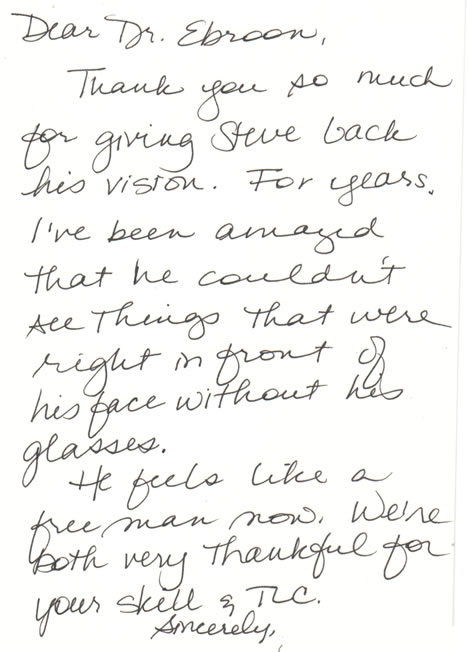 Dear Dr. Ebroon,
Thank you so much
for giving Steve back
his vision. For years,
I've been amazed
that he couldn't
see things that were
right in front of
his face without his
glasses.
He feels like a
free man now. We're
both very thankful for
your skill & TLC.
Sincerely,